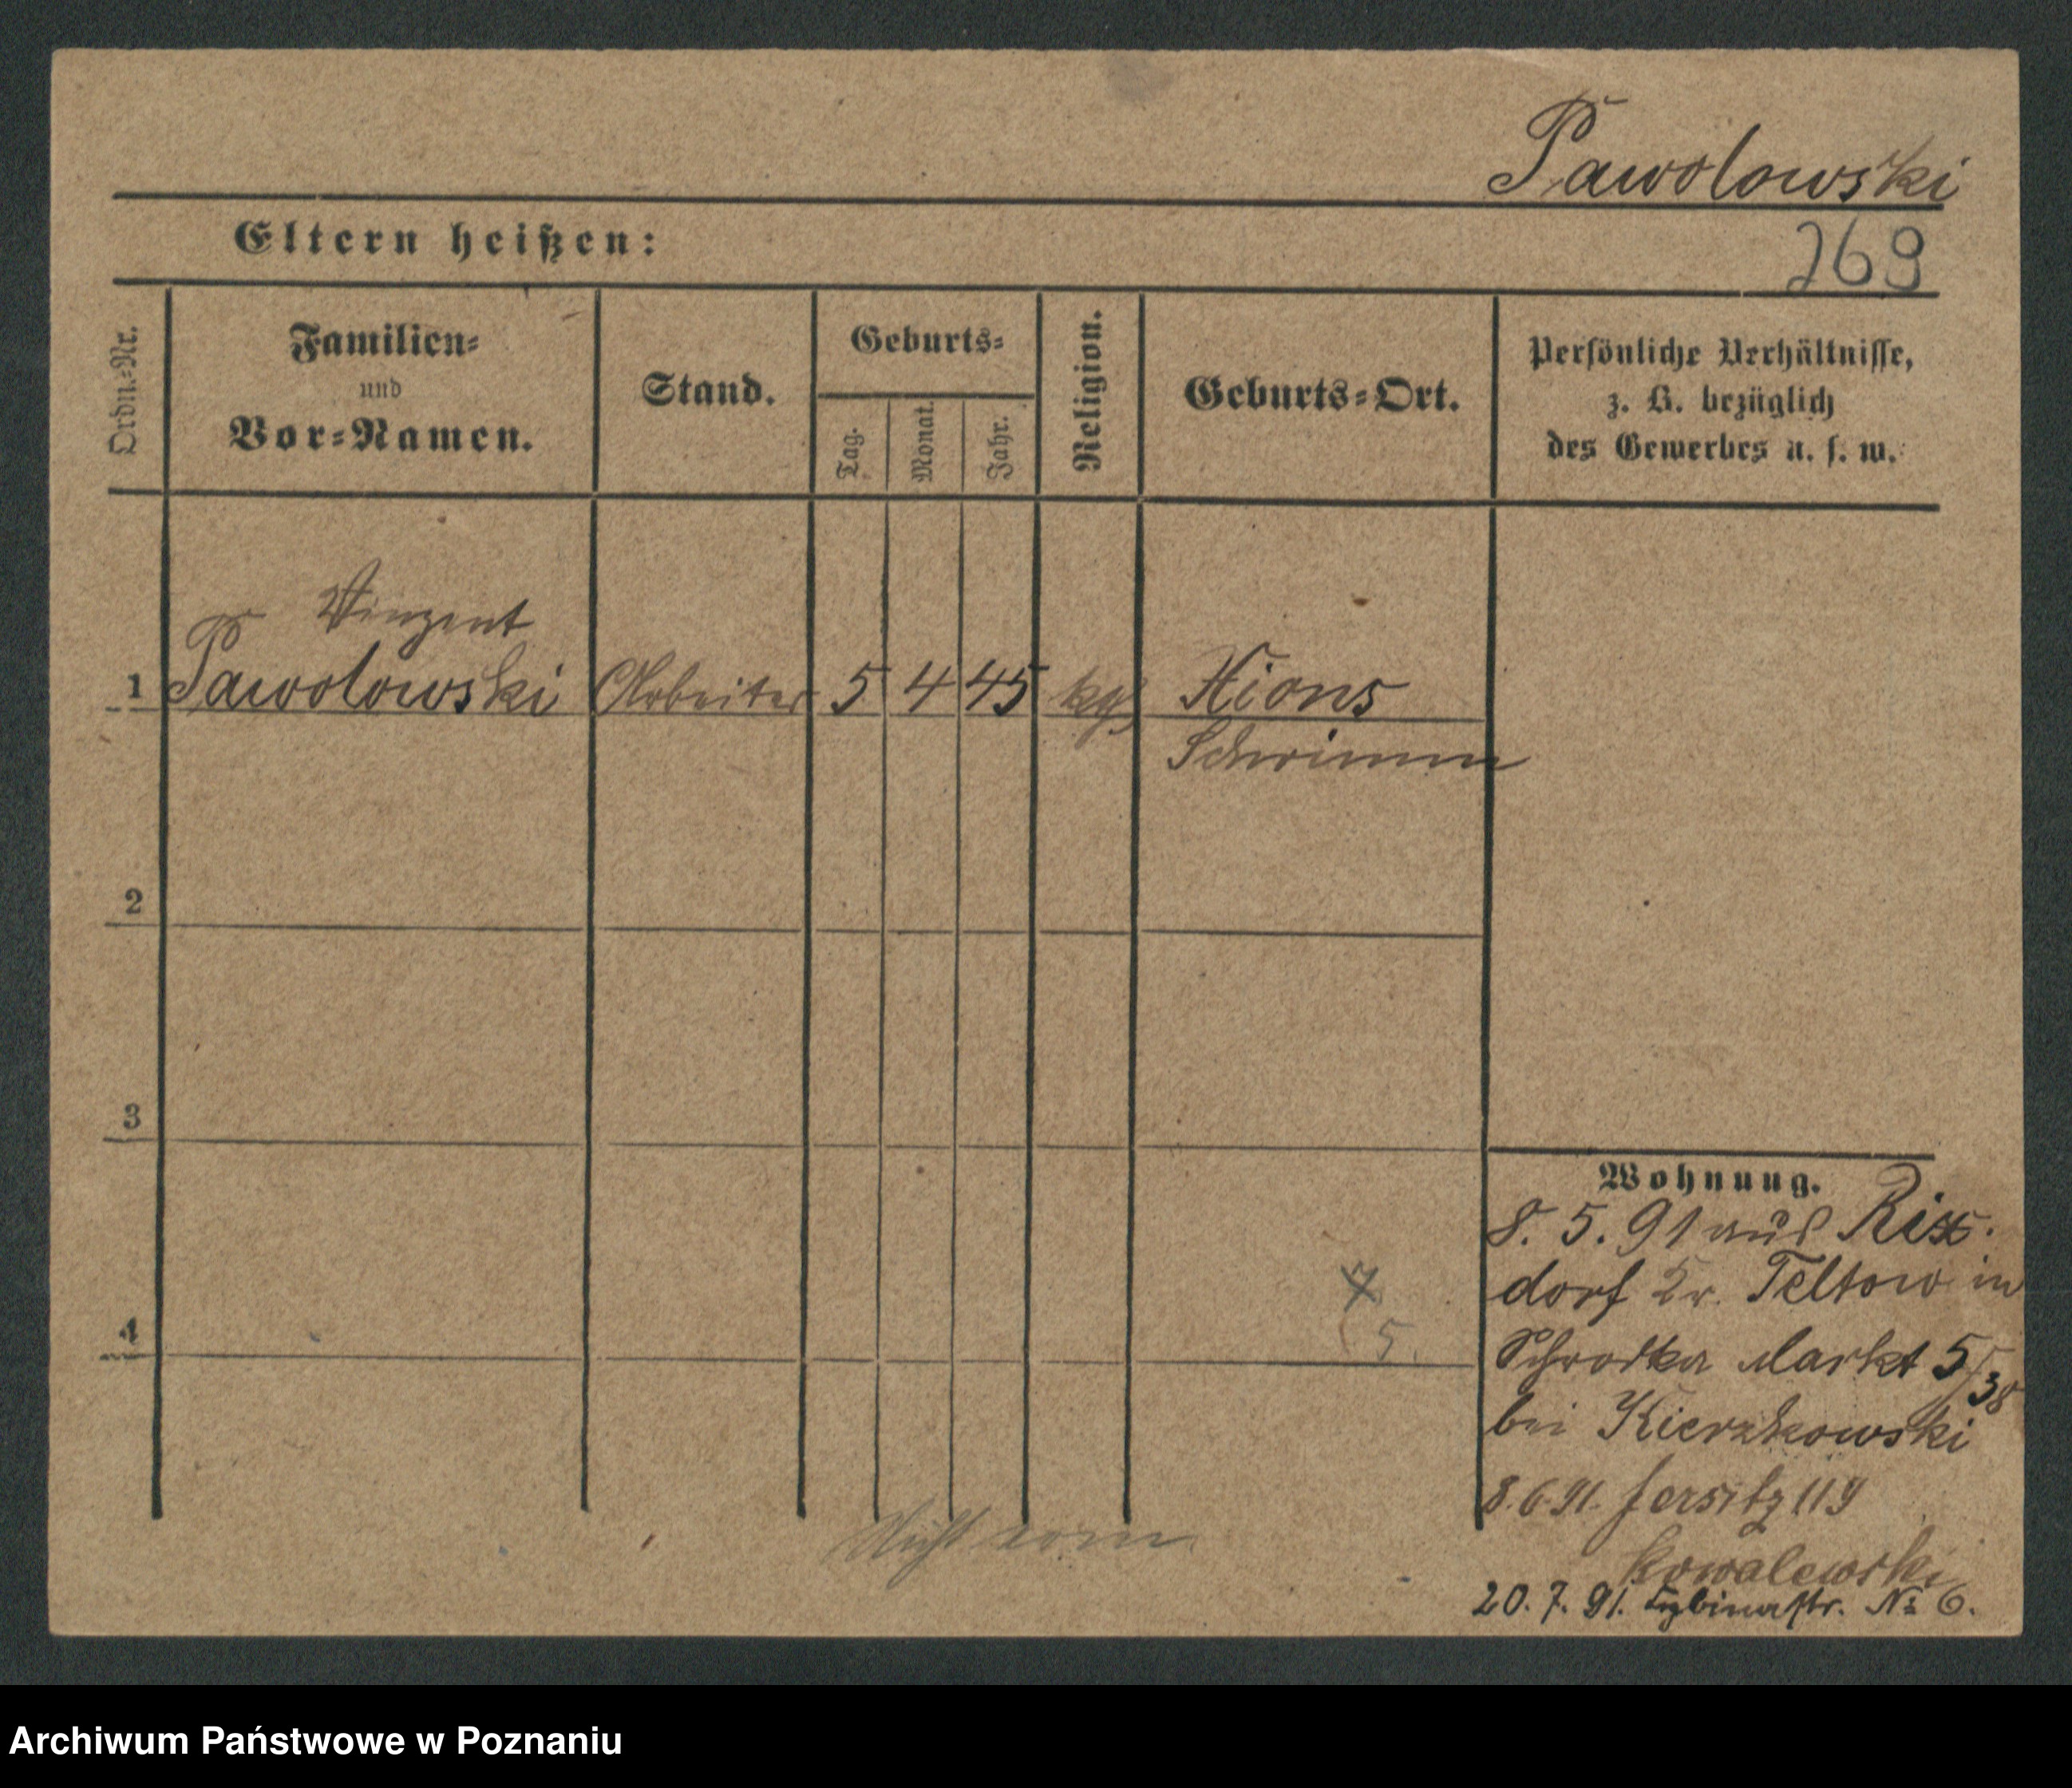 Pawolowski
Eltern heißen:
269
Ordn.-Nr.
Familien-
und
Vor-Namen.
Stand.
Geburts-
Tag.
Monat.
Jahr.
Religion.
Geburts-Ort.
Persönliche Verhältnisse,
z. B. bezüglich
des Gewerbes u. s. w.
Vinzent
1 Pawolowski Arbeiter 5 4 45 kath Xions
Schrimm
2
3
4
5.
Wohnung.
8. 5. 91 aus Rix-
dorf Kr. Teltow in
Schrodka Markt 5/38
bei Kierzkowski
8.6.91. Jersitz 119
Kowalewski
20. 7. 91. Cybinastr. № 6.
Archiwum Państwowe w Poznaniu